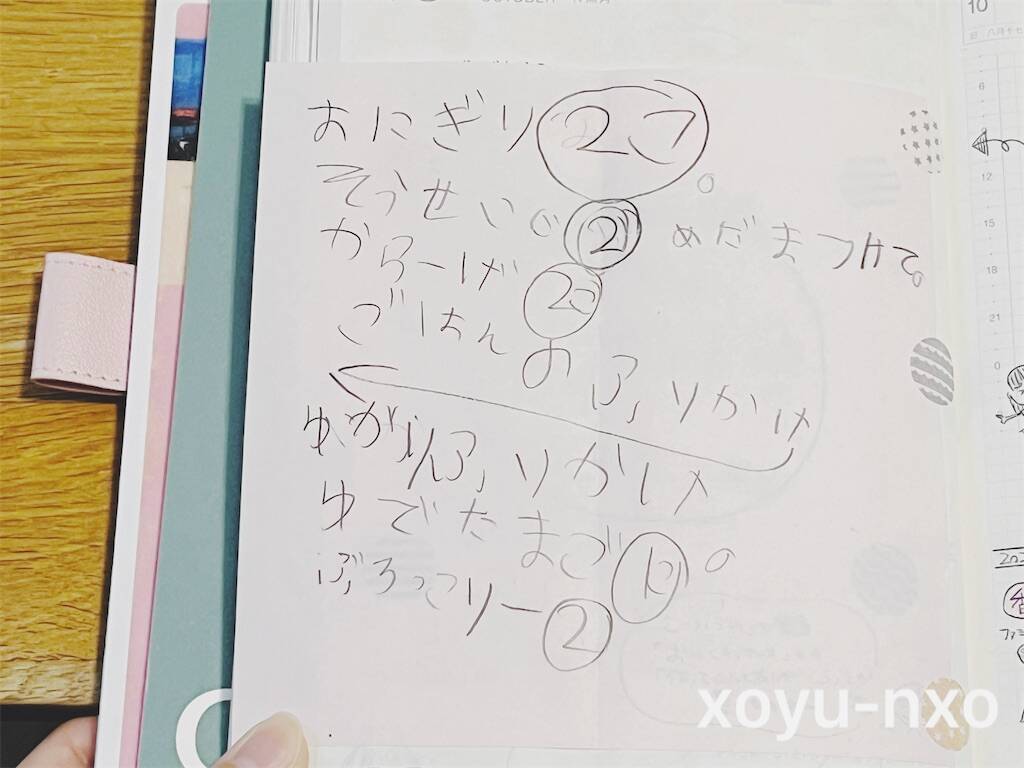 おにぎり2つ。
そうせい 2 めだまつけて。
からーげ 2こ
ごはんの ふりかけ
ゆかりふりかけ
ゆでたまご 1こ。
ぶろっこりー 2
10
6
12
15
18
21
0
xoyu-nxo